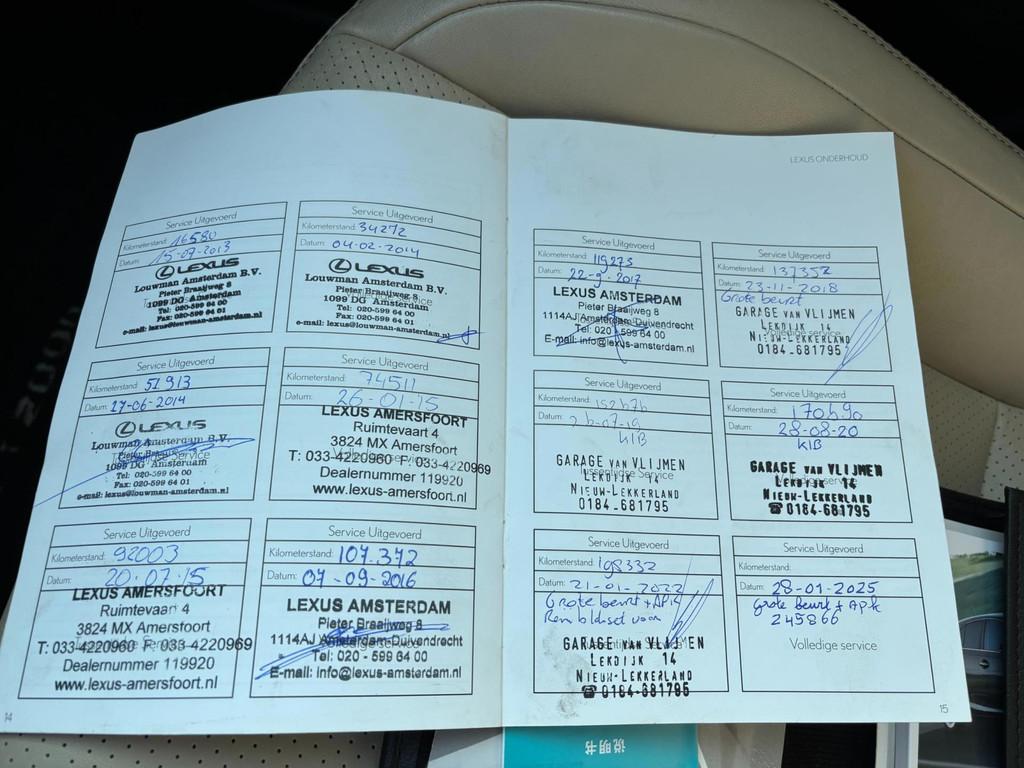 Service Uitgevoerd
Kilometerstand: 16580
Datum: 15-07-2013
LEXUS
Louwman Amsterdam B.V.
Pieter Braaijweg 8
1099 DG Amsterdam
Tel: 020-599 64 00
Fax: 020-599 64 01
e-mail: lexus@louwman-amsterdam.nl
Service Uitgevoerd
Kilometerstand: 34272
Datum: 04-02-2014
LEXUS
Louwman Amsterdam B.V.
Pieter Braaijweg 8
1099 DG Amsterdam
Tel: 020-599 64 00
Fax: 020-599 64 01
e-mail: lexus@louwman-amsterdam.nl
Service Uitgevoerd
Kilometerstand: 51913
Datum: 17-06-2014
LEXUS
Louwman Amsterdam B.V.
Pieter Braaijweg 8
1099 DG Amsterdam
Tel: 020-599 64 00
Fax: 020-599 64 01
e-mail: lexus@louwman-amsterdam.nl
Service Uitgevoerd
Kilometerstand: 74511
Datum: 26-01-15
LEXUS AMERSFOORT
Ruimtevaart 4
3824 MX Amersfoort
T: 033-4220960 F: 033-4220969
Dealernummer 119920
www.lexus-amersfoort.nl
Service Uitgevoerd
Kilometerstand: 92003
Datum: 20-07-15
LEXUS AMERSFOORT
Ruimtevaart 4
3824 MX Amersfoort
T: 033-4220960 F: 033-4220969
Dealernummer 119920
www.lexus-amersfoort.nl
Service Uitgevoerd
Kilometerstand: 107.372
Datum: 07-09-2016
LEXUS AMSTERDAM
Pieter Braaijweg 8
1114AJ Amsterdam-Duivendrecht
Tel: 020 - 599 64 00
E-mail: info@lexus-amsterdam.nl
14
LEXUS ONDERHOUD
Service Uitgevoerd
Kilometerstand: 119273
Datum: 22-9-2017
LEXUS AMSTERDAM
Pieter Braaijweg 8
1114AJ Amsterdam-Duivendrecht
Tel: 020 - 599 64 00
E-mail: info@lexus-amsterdam.nl
Service Uitgevoerd
Kilometerstand: 137352
Datum: 23-11-2018
Grote beurt
GARAGE VAN VLIJMEN
LEKDIJK 14
NIEUW-LEKKERLAND
0184-681795
Service Uitgevoerd
Kilometerstand: 152676
Datum:
KIB
GARAGE VAN VLIJMEN
LEKDIJK 14
NIEUW-LEKKERLAND
0184-681795
Service Uitgevoerd
Kilometerstand: 170690
Datum: 28-08-20
KIB
GARAGE VAN VLIJMEN
LEKDIJK 14
NIEUW-LEKKERLAND
☎ 0184-681795
Service Uitgevoerd
Kilometerstand: 198332
Datum: 21-01-2022
Grote beurt + APK
Remblokset voor
GARAGE VAN VLIJMEN
LEKDIJK 14
NIEUW-LEKKERLAND
☎ 0184-681795
Service Uitgevoerd
Kilometerstand:
Datum: 28-01-2025
Grote beurt + APK
245866
Volledige service
15
说明书